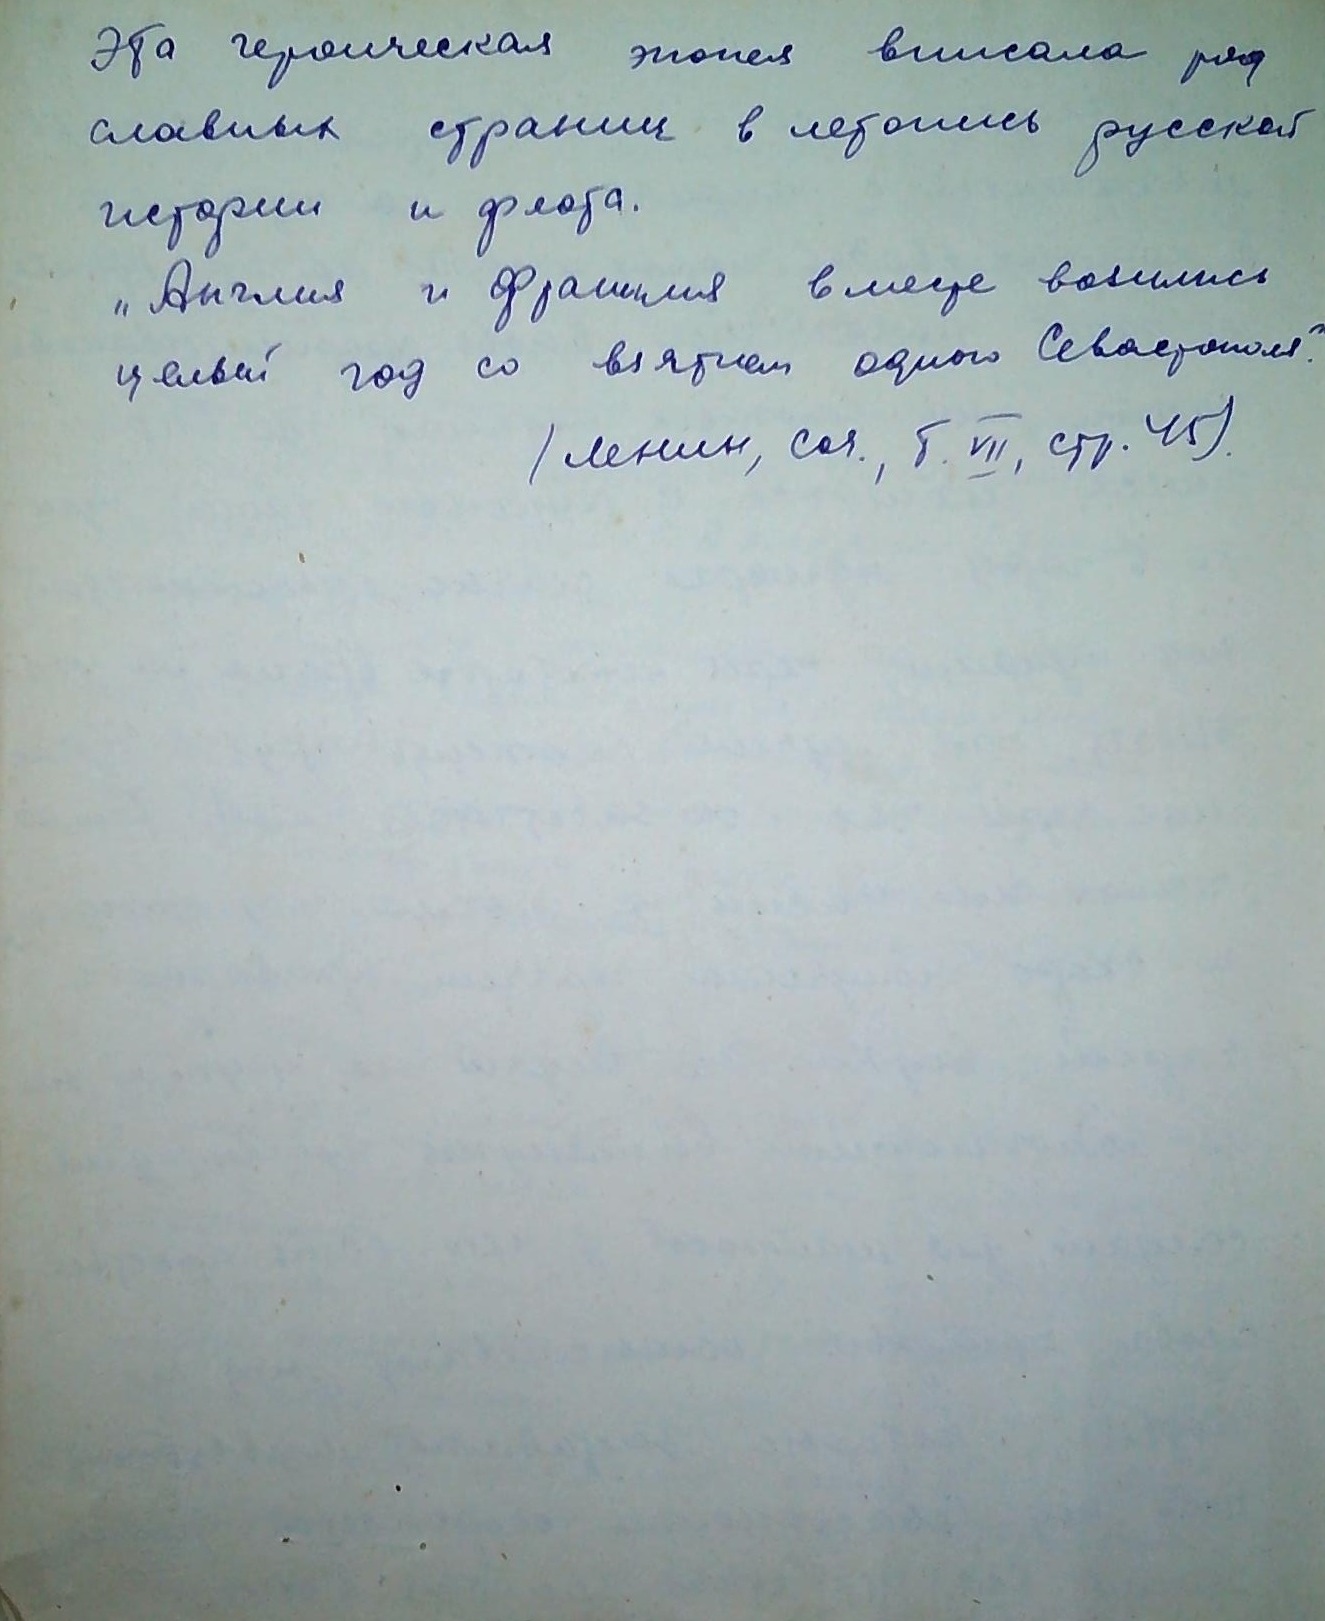 Эта героическая эпопея вписала ряд
славных страниц в летопись русской
истории и флота.
„Англия и Франция вместе возились
целый год со взятием одного Севастополя".
(Ленин, Соч., т. VII, стр. 45).